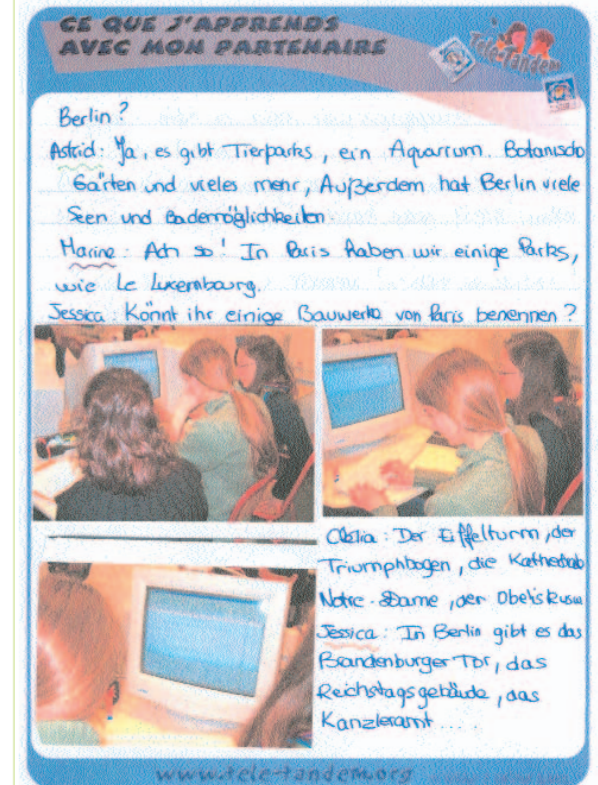 CE QUE J'APPRENDS
AVEC MON PARTENAIRE
Tele-Tandem
Berlin?
Astrid: Ja, es gibt Tierparks, ein Aquarium, Botanische
Gärten und vieles mehr, Außerdem hat Berlin viele
Seen und Bademöglichkeiten
Marine: Ach so! In Paris haben wir einige Parks,
wie Le Luxembourg.
Jessica: Könnt ihr einige Bauwerke von Paris benennen?
Clélia: Der Eiffelturm, der
Triumphbogen, die Kathedrale
Notre-Dame, der Obeliskus
Jessica: In Berlin gibt es das
Brandenburger Tor, das
Reichstagsgebäude, das
Kanzleramt....
www.tele-tandem.org